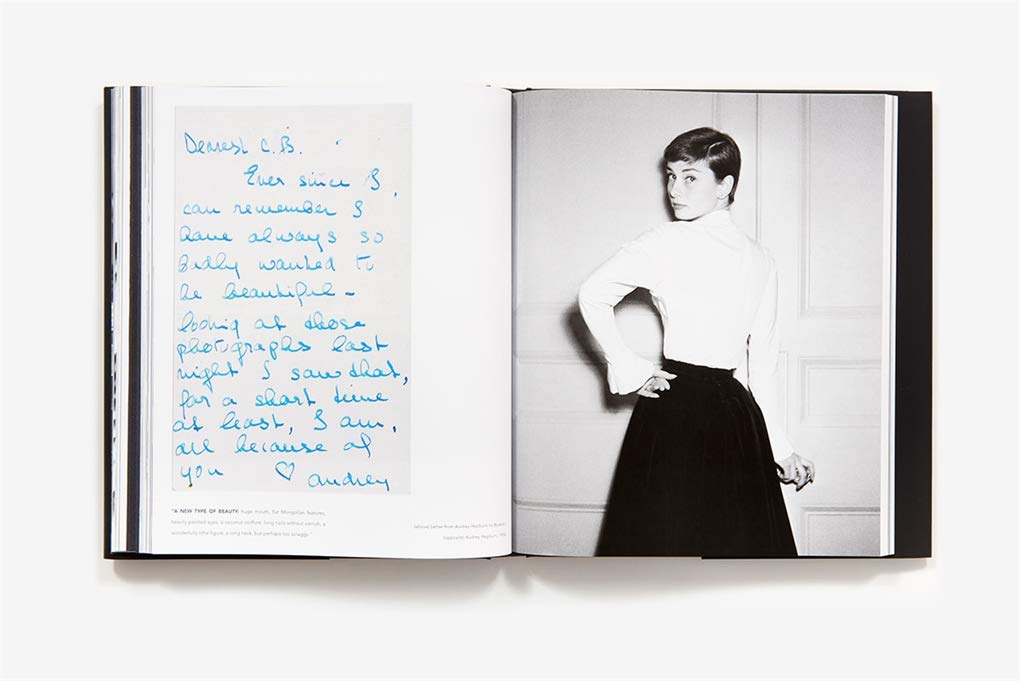 Dearest C.B.
Ever since I
can remember I
have always so
Badly wanted to
be beautiful –
looking at those
photographs last
night I saw that,
for a short time
at least, I am,
all because of
you ♡ audrey
"A NEW TYPE OF BEAUTY: huge mouth, flat Mongolian features,
heavily painted eyes, a coconut coiffure, long nails without varnish, a
wonderfully lithe figure, a long neck, but perhaps too scraggy."
(above) Letter from Audrey Hepburn to Beaton
(opposite) Audrey Hepburn,